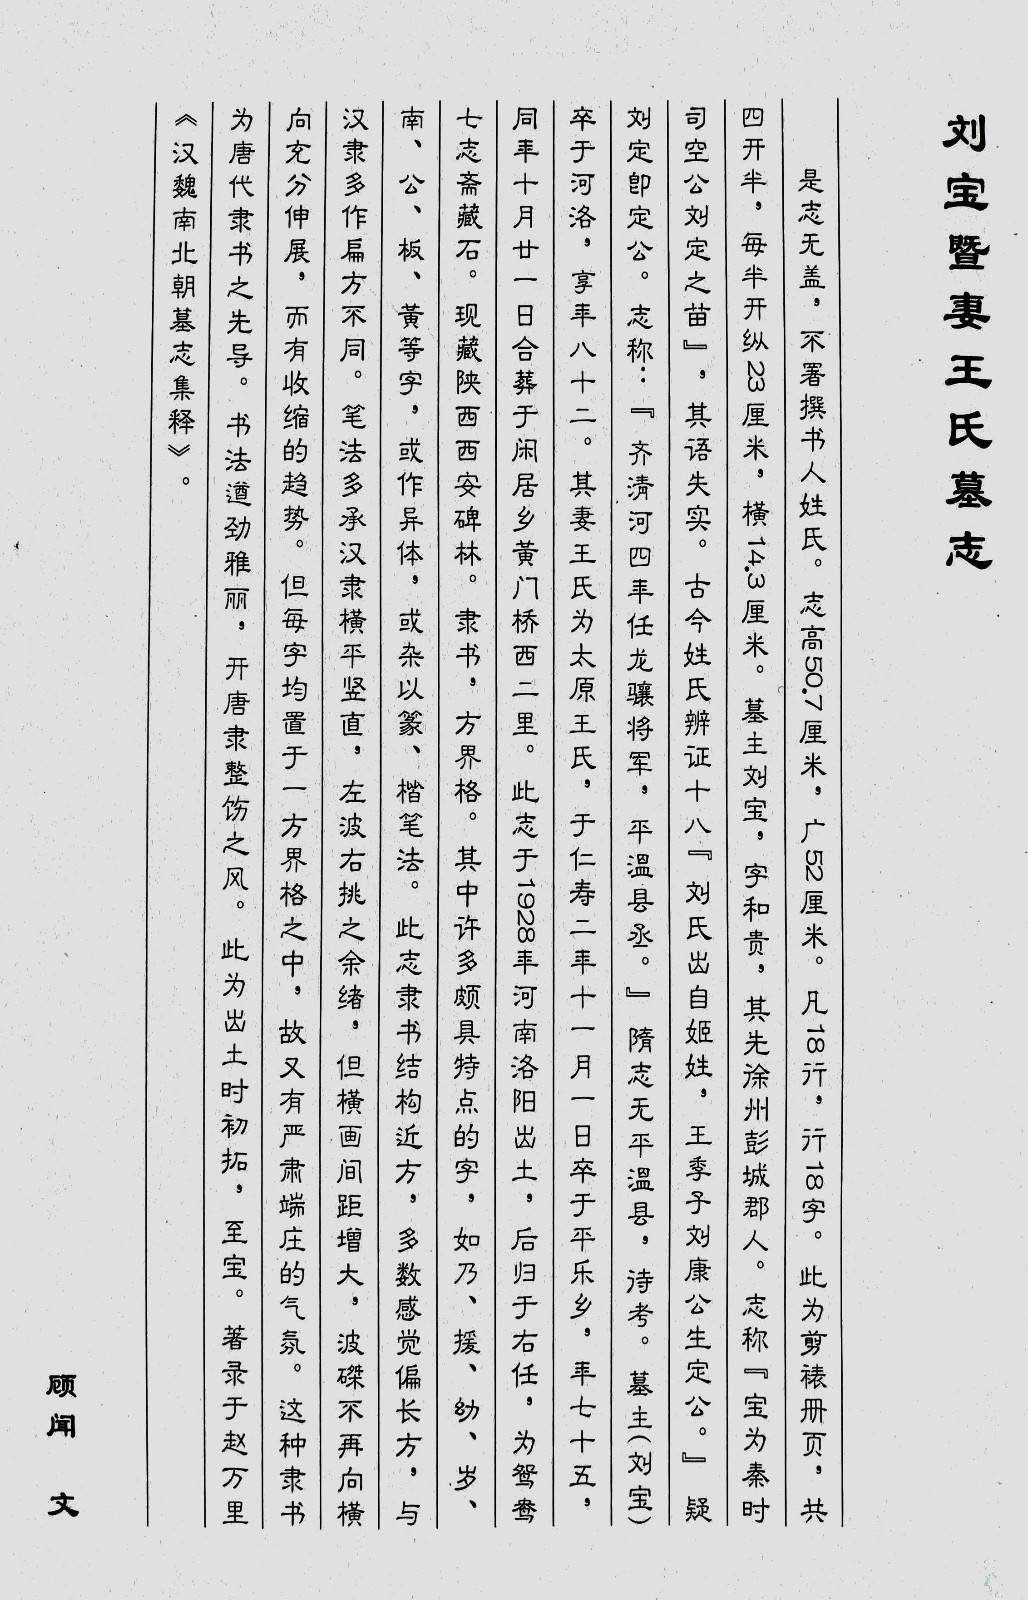 刘宝暨妻王氏墓志
是志无盖，不署撰书人姓氏。志高50.7厘米，广52厘米。凡18行，行18字。此为剪裱册页，共
四开半，每半开纵23厘米，横14.3厘米。墓主刘宝，字和贵，其先徐州彭城郡人。志称『宝为秦时
司空公刘定之苗』，其语失实。古今姓氏辨证十八『刘氏出自姬姓，王季子刘康公生定公。』疑
刘定即定公。志称：『齐清河四年任龙骧将军，平温县丞。』隋志无平温县，待考。墓主(刘宝)
卒于河洛，享年八十二。其妻王氏为太原王氏，于仁寿二年十一月一日卒于平乐乡，年七十五，
同年十月廿一日合葬于闲居乡黄门桥西二里。此志于1928年河南洛阳出土，后归于右任，为鸳鸯
七志斋藏石。现藏陕西西安碑林。隶书，方界格。其中许多颇具特点的字，如乃、援、幼、岁、
南、公、板、黄等字，或作异体，或杂以篆、楷笔法。此志隶书结构近方，多数感觉偏长方，与
汉隶多作扁方不同。笔法多承汉隶横平竖直，左波右挑之余绪，但横画间距增大，波磔不再向横
向充分伸展，而有收缩的趋势。但每字均置于一方界格之中，故又有严肃端庄的气氛。这种隶书
为唐代隶书之先导。书法遒劲雅丽，开唐隶整饬之风。此为出土时初拓，至宝。著录于赵万里
《汉魏南北朝墓志集释》。
顾闻 文